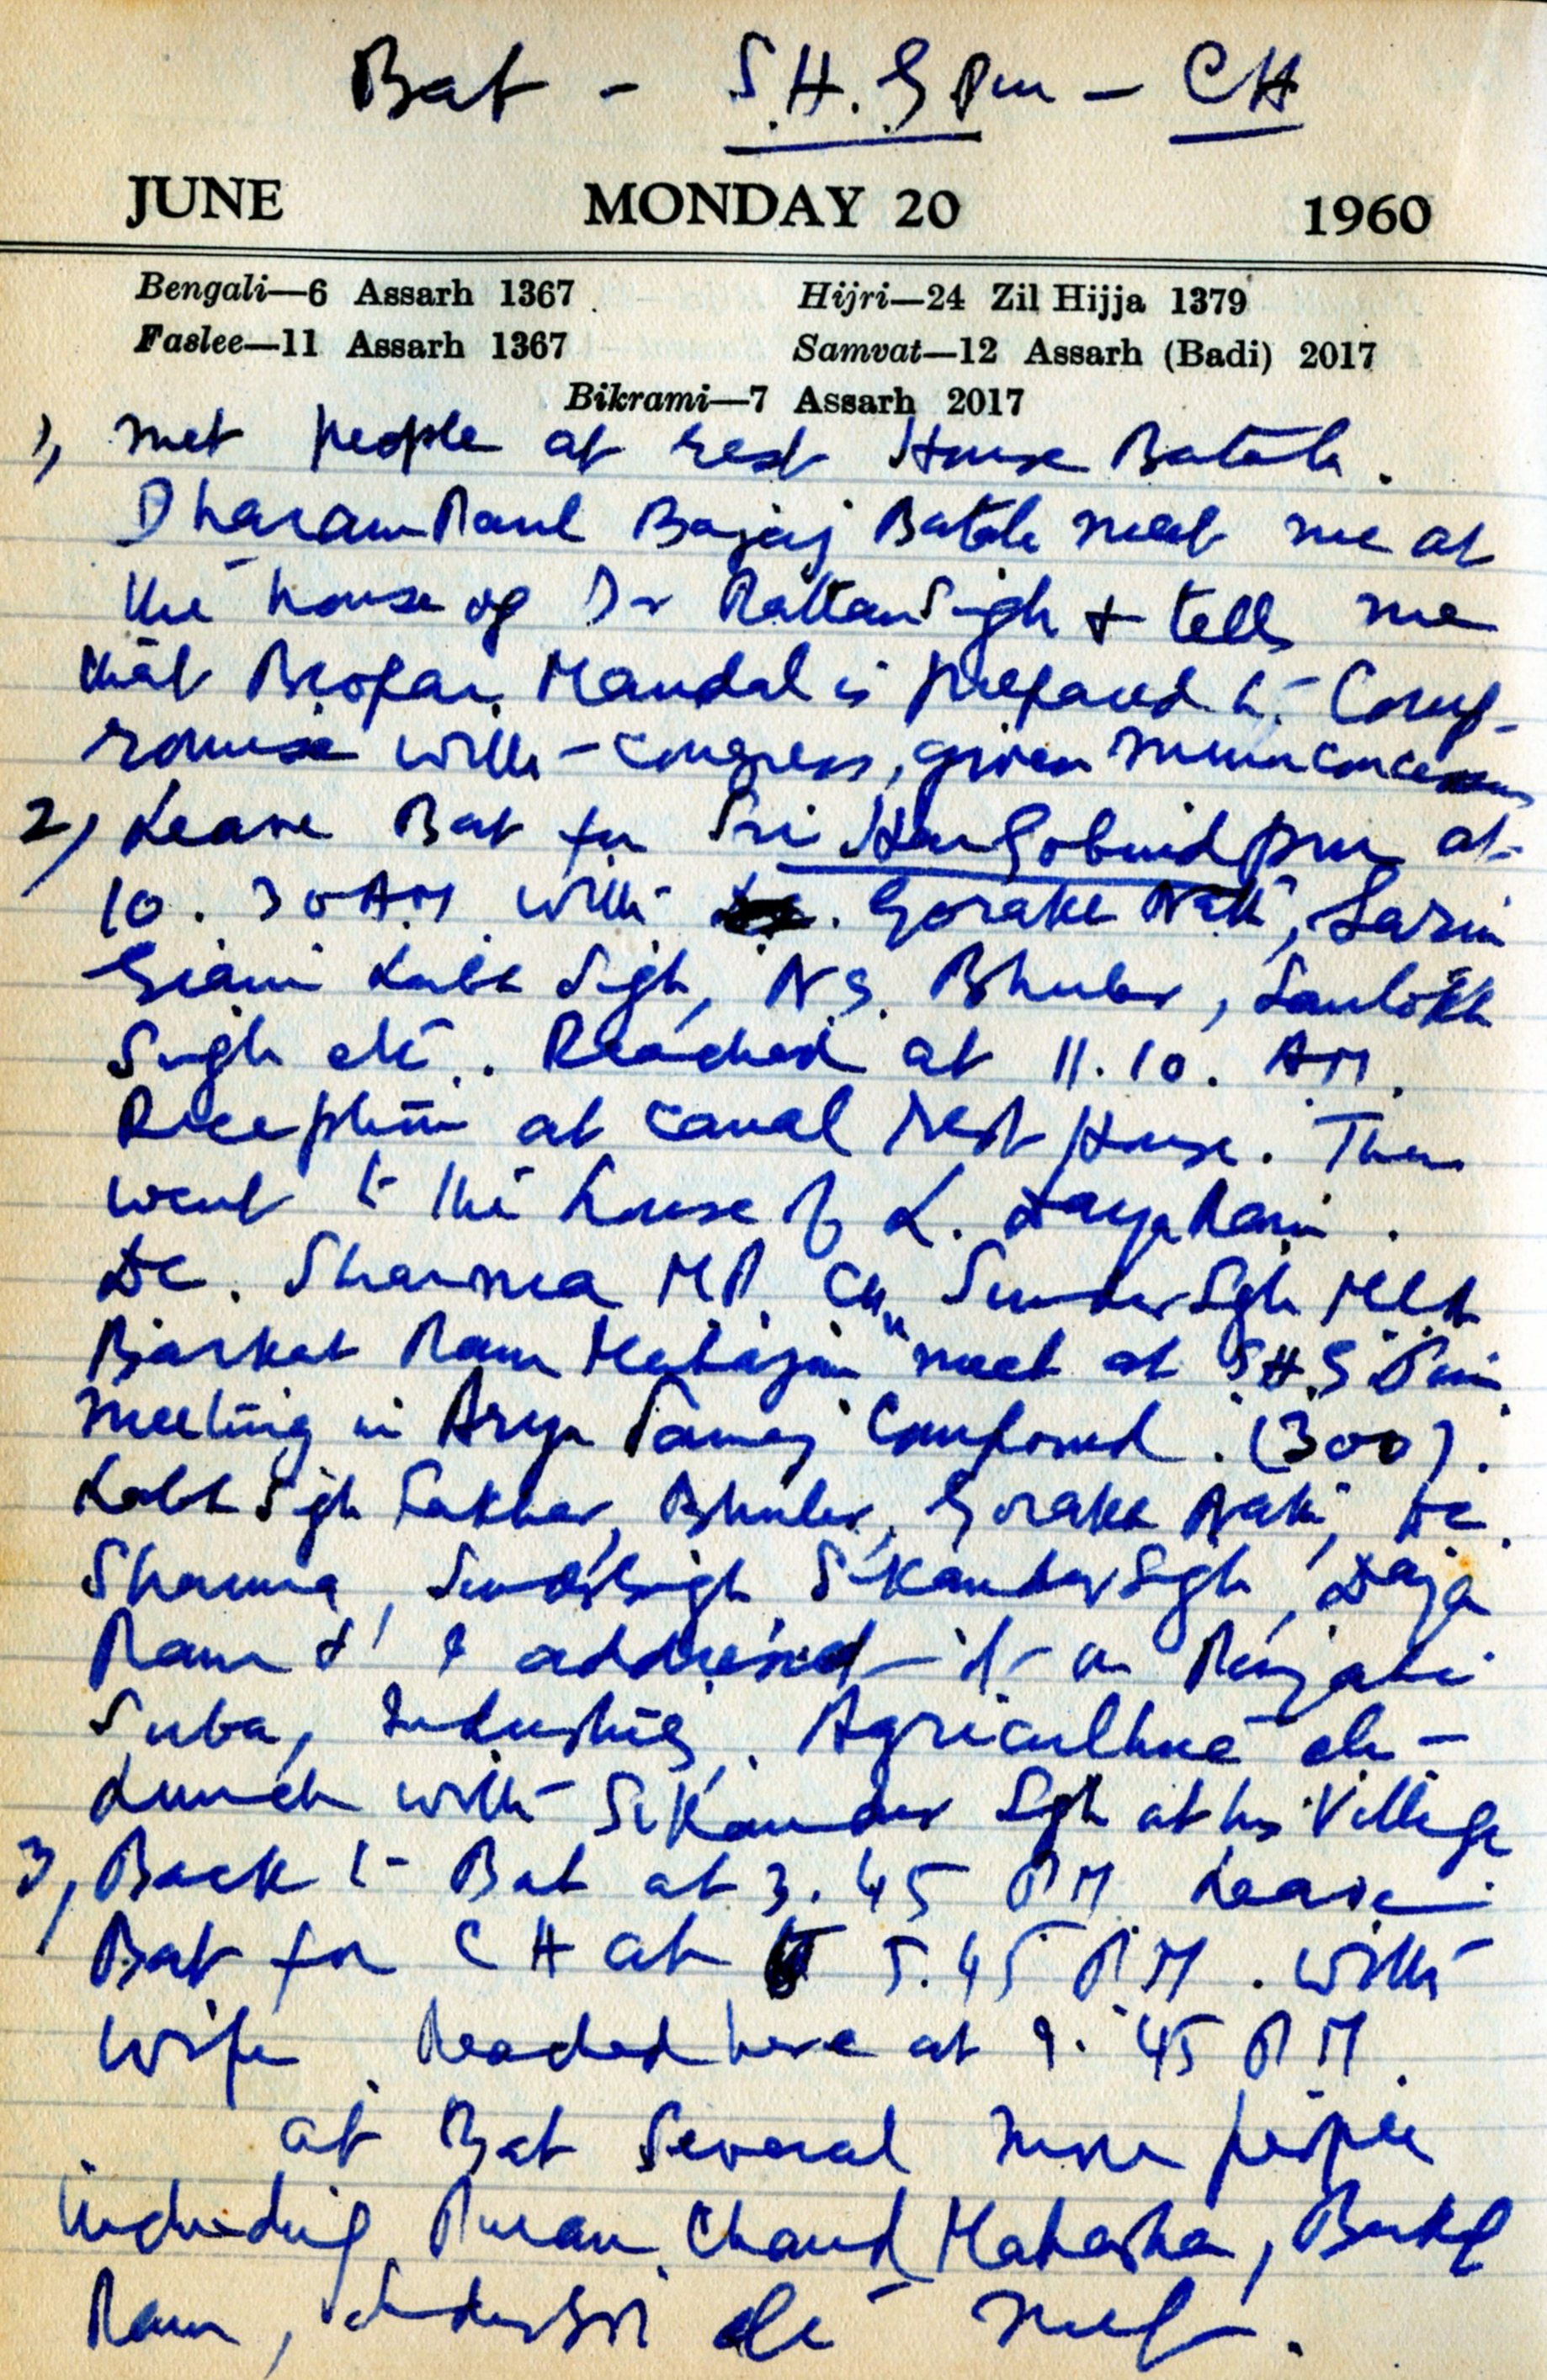 Bat - S.H.G Pur - CH
JUNE MONDAY 20 1960
Bengali—6 Assarh 1367 Hijri—24 Zil Hijja 1379
Faslee—11 Assarh 1367 Samvat—12 Assarh (Badi) 2017
Bikrami—7 Assarh 2017
1, met people at rest House Batala.
Dharam Paul Bajaj Batala meet me at
the house of Dr Rattan Singh & tells me
that Beopar Mandal is prepared to Comp-
romise with congress, given
2, Leave Bat for Sri HarGobindpur at
10.30 AM with Gorakh Nath, Sarin
Giani Labh Sigh, N.S. Bhuler, Santokh
Singh etc.. Reached at 11.10. AM.
Reception at canal rest House. Then
went to the house of L. Daya Ram.
DC. Sharma M.P. Ch. Sunder Sgh MLA
Barkat Ram Mahajan meet at S.H.G Pur
meeting in Arya Samaj Compound. (300).
Labh Sigh Fakhar, Bhuler, Gorakh Nath, DC.
Sharma, Sunder Singh, Sikander Sgh, Daya
Ram & I addressed it on Punjabi
Suba, Industries, Agriculture etc-
Lunch with Sikander Sgh at his Village
3, Back to Bat at 3.45 PM Leave
Bat for CH at 5.45 P.M. with
wife. Reached here at 9.45 PM.
at Bat Several more people
including Puran Chand Mahasha,
Ram, etc met.